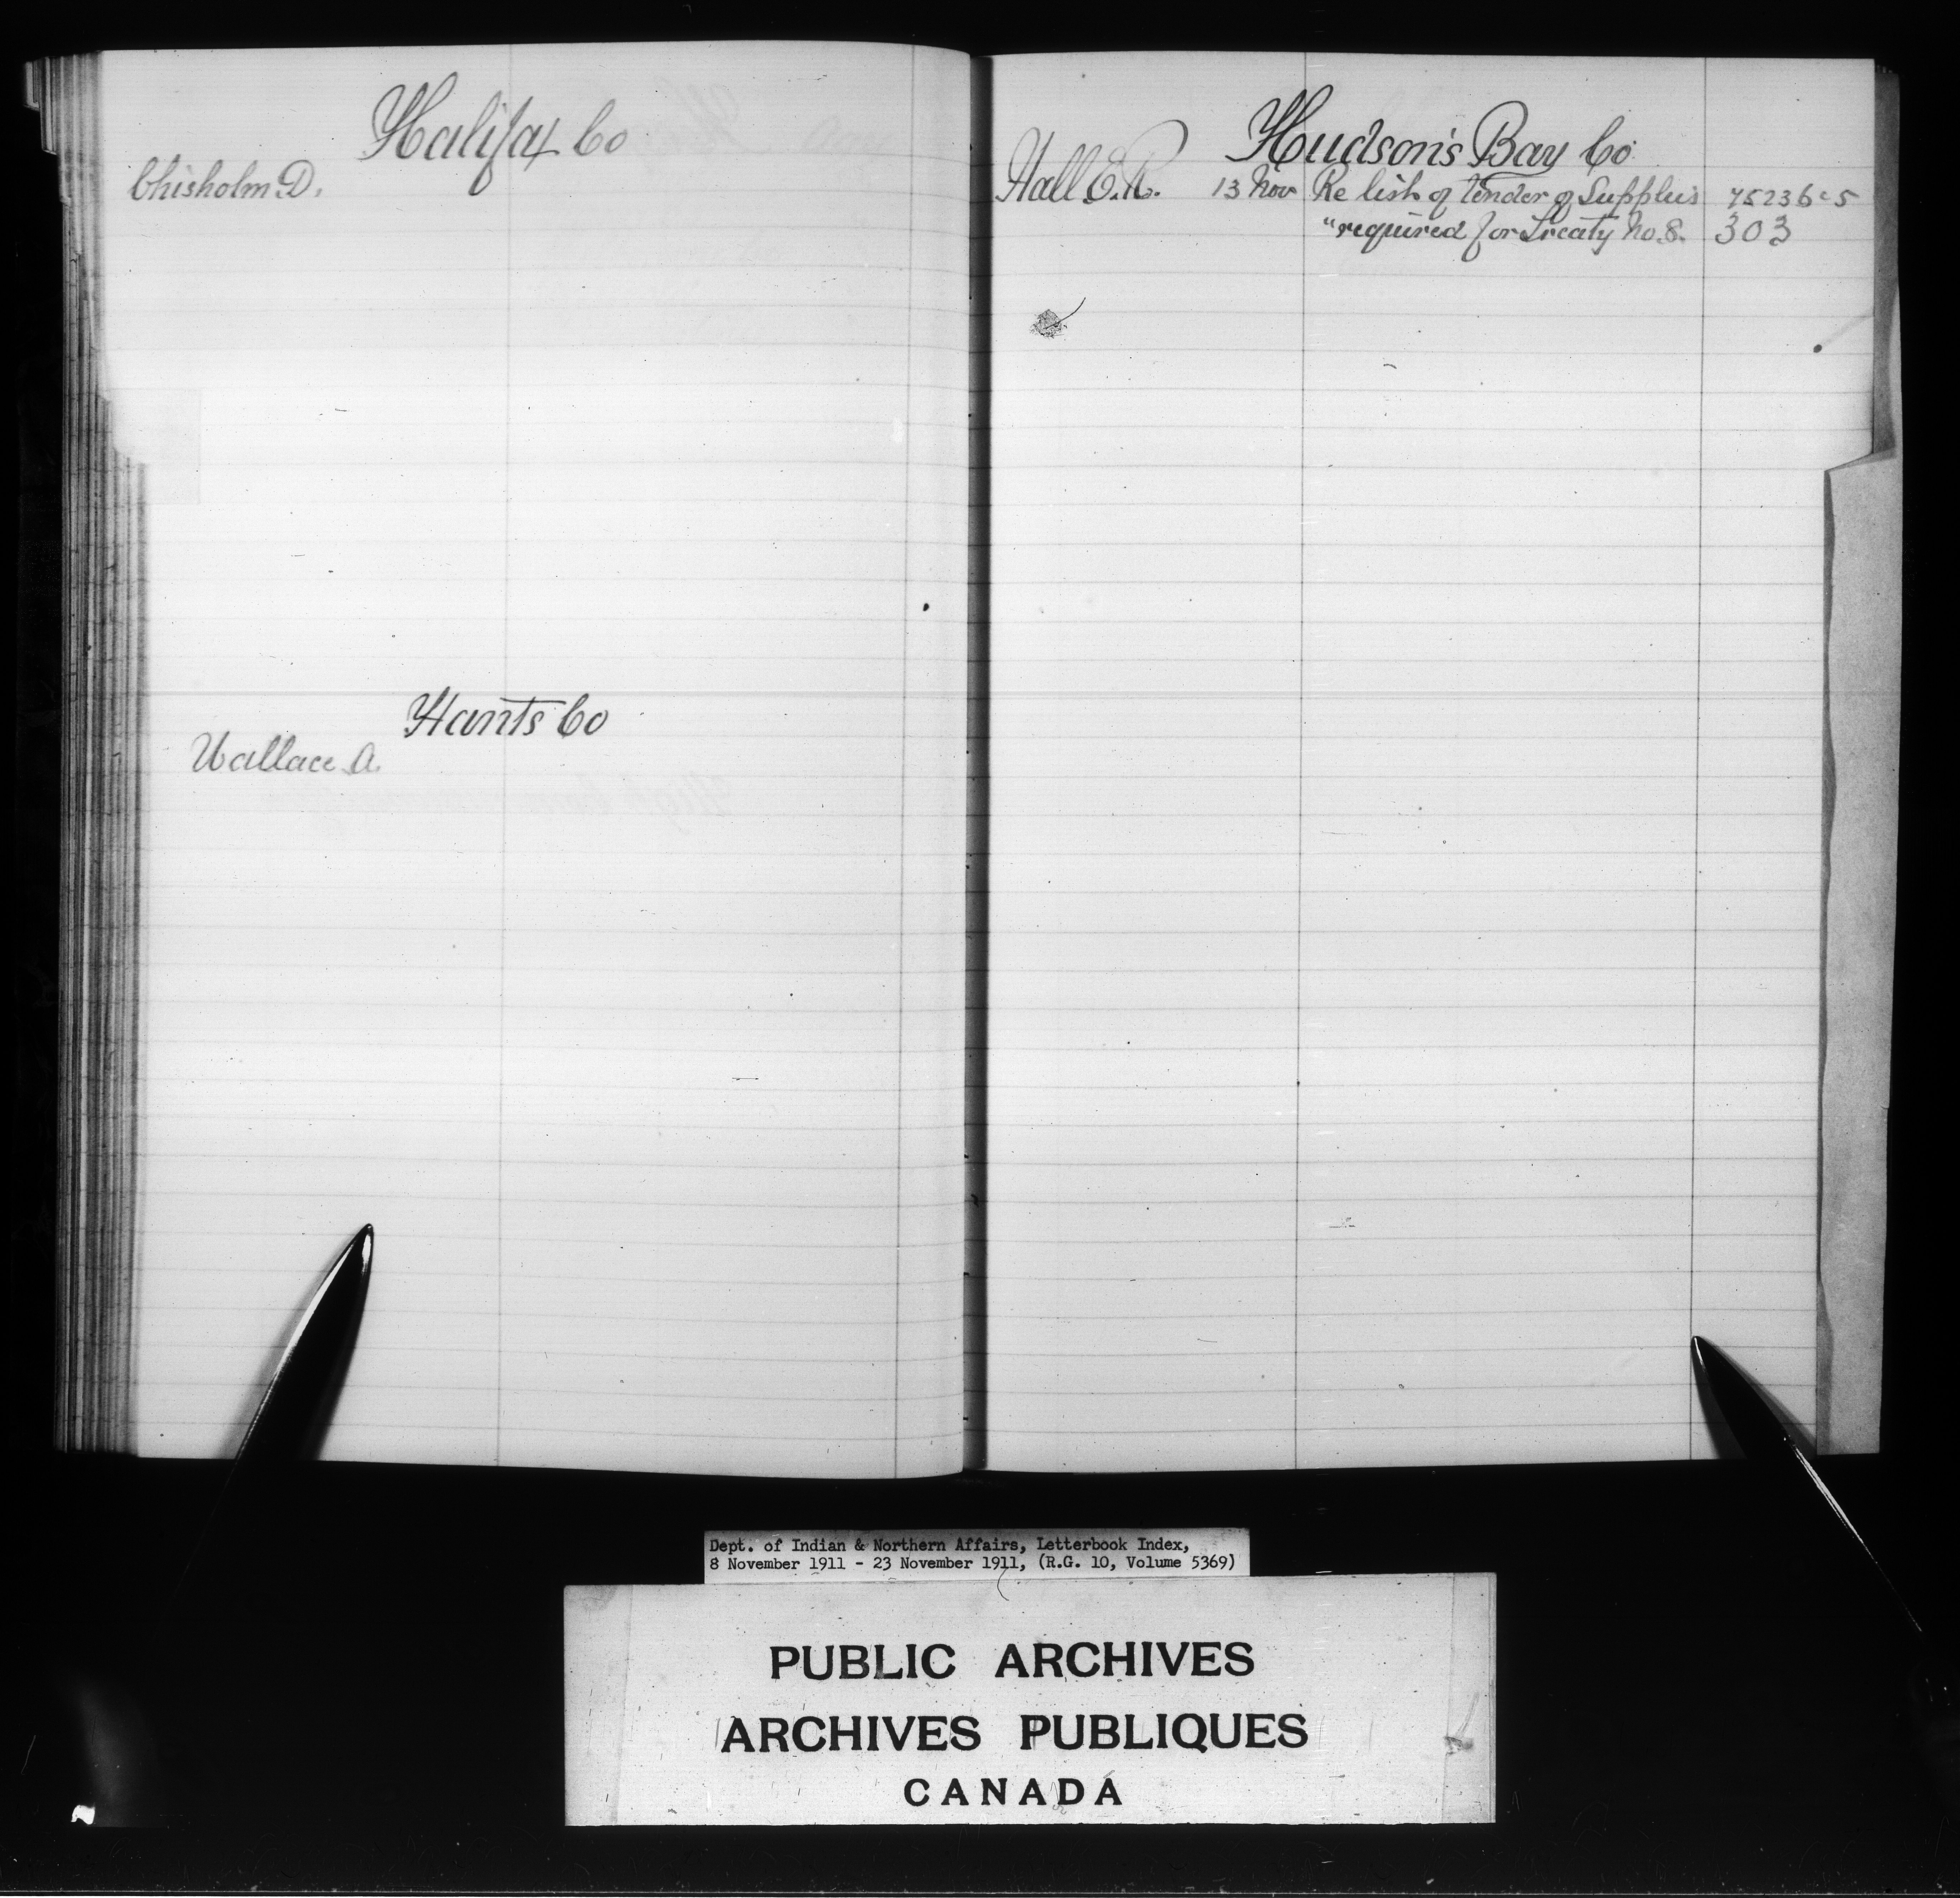 Halifax Co
Chisholm D.
Hants Co
Wallace A.
Hudson's Bay Co
Hall E.R. 13 Nov Re list of tender of Supplies 75236-5
" required for Treaty No. 8. 303
Dept. of Indian & Northern Affairs, Letterbook Index,
8 November 1911 - 23 November 1911, (R.G. 10, Volume 5369)
PUBLIC ARCHIVES
ARCHIVES PUBLIQUES
CANADA